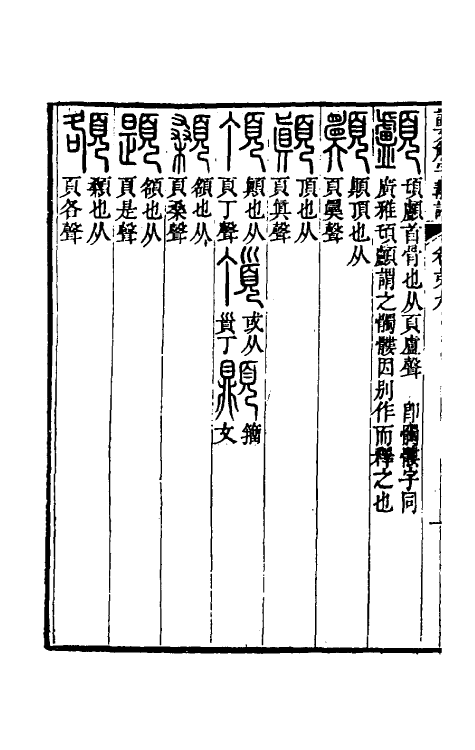 顱 𩑒顱首骨也从頁盧聲 即髑髏字同
廣雅𩑒顱謂之髑髏因別作而釋之也
顛頂也从
頁㬱聲
顚 頂也从
頁眞聲
頂 顚也从
頁丁聲
或从
𩠐丁
籒
文
顙 頟也从
頁桑聲
題 頟也从
頁是聲
頟 顙也从
頁各聲